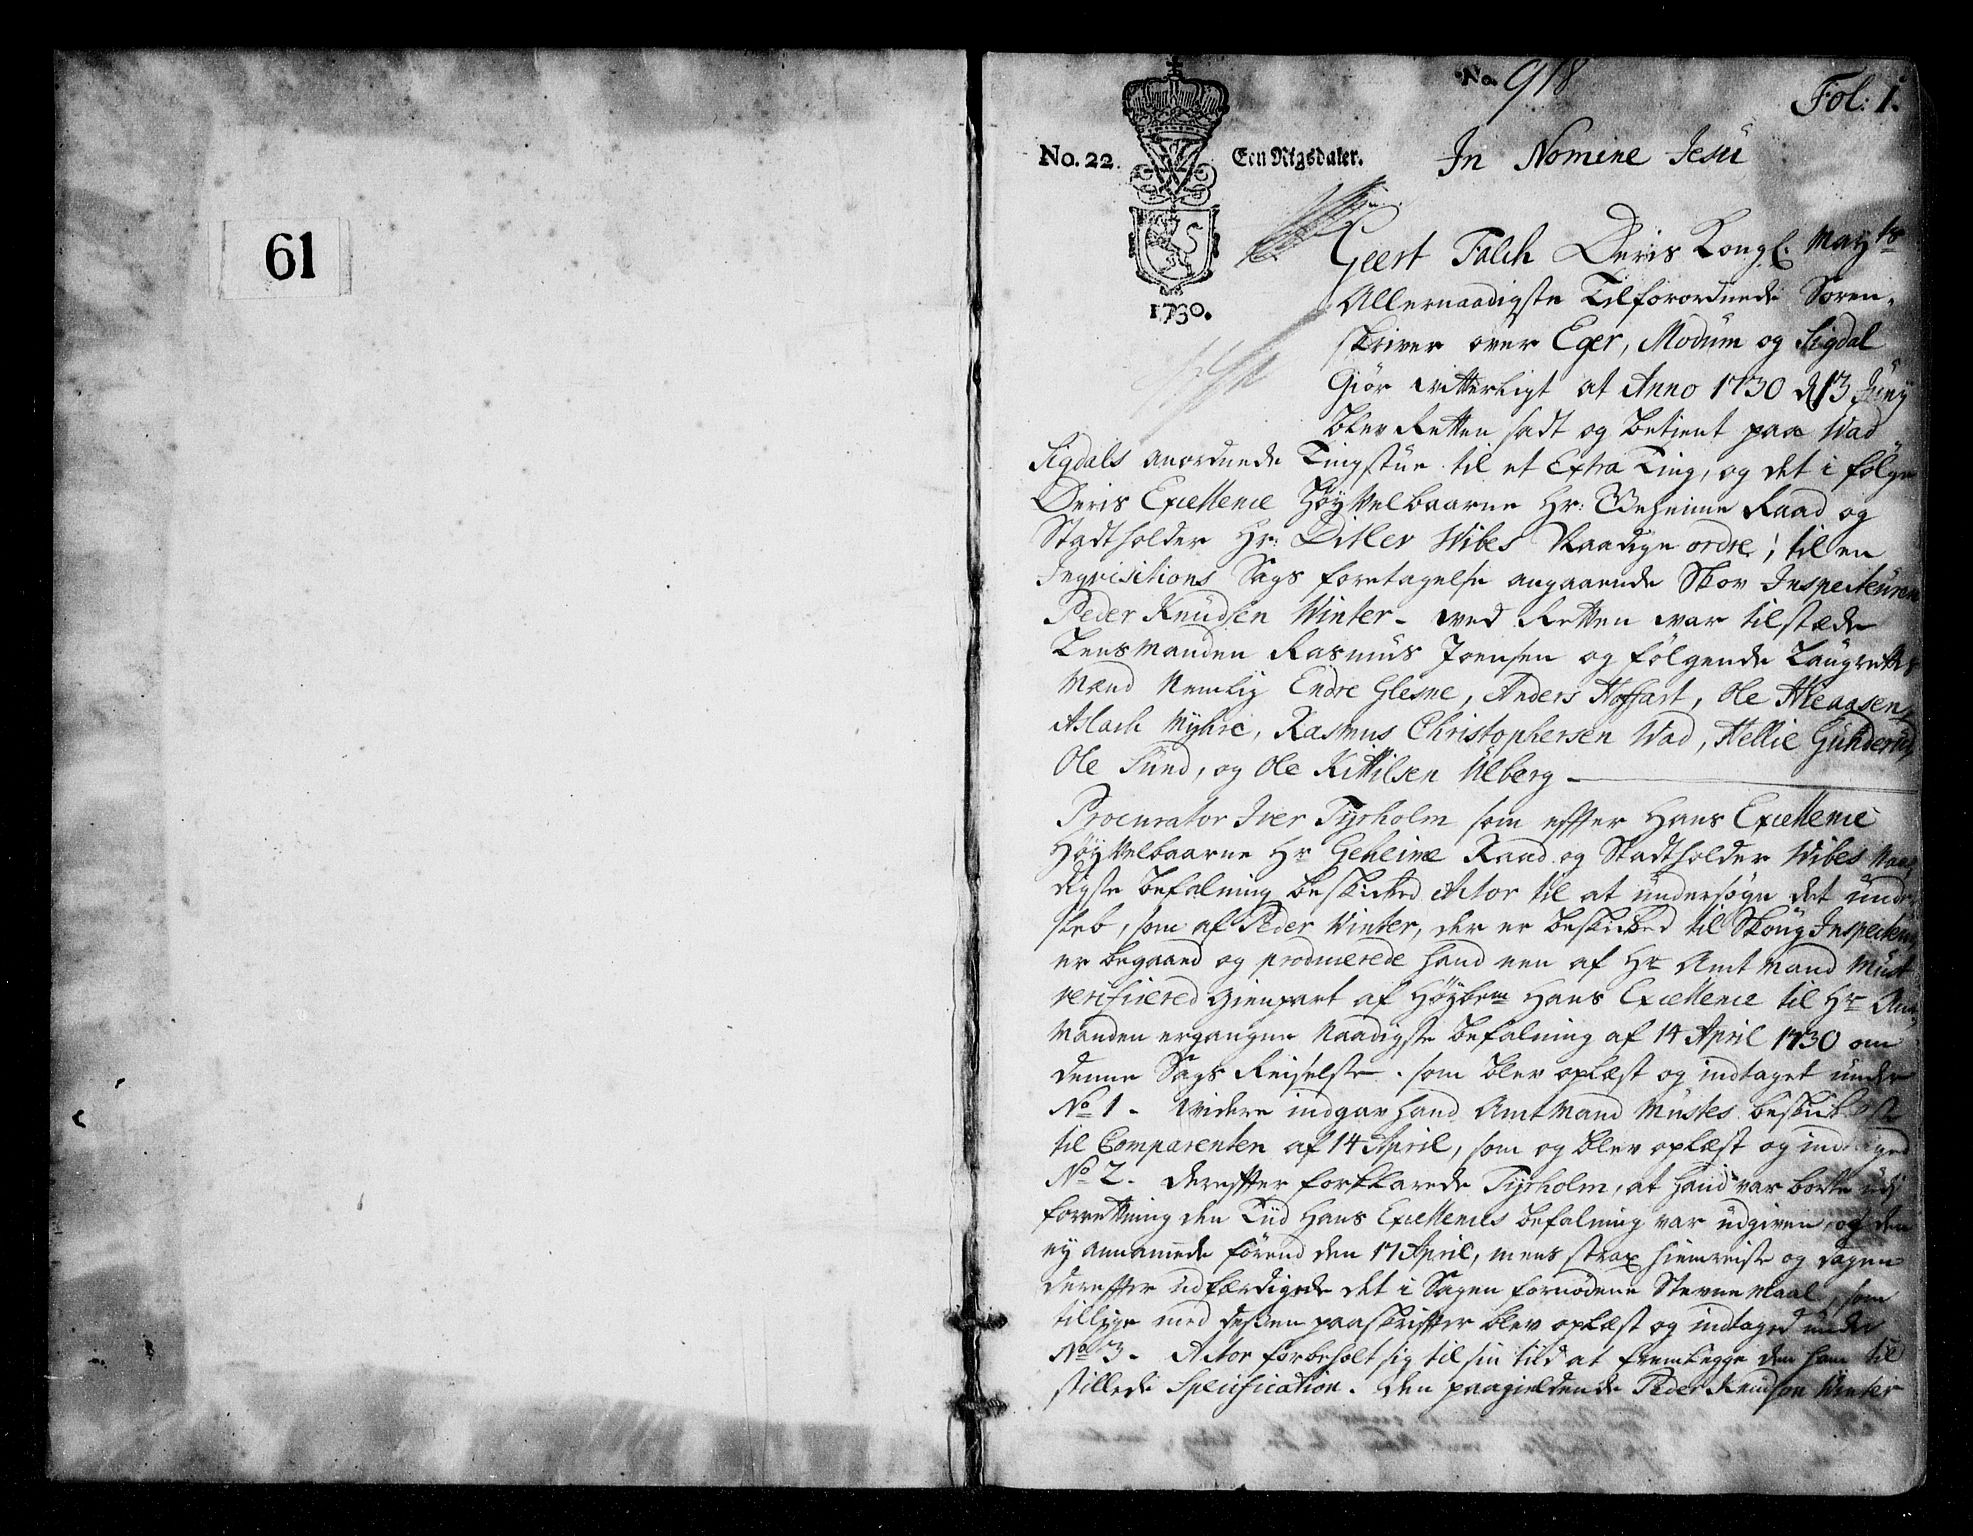 61
No. 918
Fol: 1.
No. 22. Een Rigsdaler.
In Nomine Jesu
1730.
Geert Falch Deris Kongl. Mayts
Allernaadigste Tilforordnede Soren-
skriver over Eger, Modum og Sigdal
Giör vitterligt at Anno 1730 d 13 Juny
blev Retten sadt og betient paa Wad
Sigdals anordnede Tingstue til et Extra Ting, og det i følge
Deris Excellence HöyVelbaarne Hr: Geheime Raad og
Stadtholder Hr: Ditlev Wibes Naadige ordre, til en
Inqvisitions Sags foretagelse angaaende Skov Inspecteuren
Peder Knudsen Winter - ved Retten var tilstæde
Lensmanden Rasmus Joensen og følgende Laugrettes
Mænd Nemlig Endre Glesne, Anders Hoffart, Ole
Aslach Myhre, Rasmus Christophersen Wad, Hellie Gunderud,
Ole Sund, og Ole Kittilsen Ulberg -
Procurator Iver Tyrholm som effter Hans Excellence
HöyVelbaarne Hr Geheime Raad og Stadtholder Wibes Naa-
digste befalning beskicked Actor til at undersøge det under-
sleb, som af Peder Winter, der er beskicked til Skoug Inspecteur
er begaaed og producerede hand een af Hr Amtmand Must
verificered Gienpart af Höybem Hans Excellence til Hr Amt-
Manden ergangne Naadigste befalning af 14 April 1730 om
denne Sags Reiselse. som blev oplæst og indtaget under
No 1 - videre indgav hand Amtmand Mustes
til Comparenten af 14 April, som og blev oplæst og indtaged
No 2 - dereffter forklarede Tyrholm, at hand var borte udj
forretning den Tiid Hans Excellences befalning var udgiven og den
ey annamede førend den 17 April, mens strax hiemreiste og dagen
dereffter udfærdigede det i Sagen fornødene Stevnemaal, som
tillige med desen paaskriffter blev oplæst og indtaged under
No 3 - Actor forbeholt sig til sin tiid at fremlegge den ham til
stillede Specification. den paagieldende Peder Knudsen Winter